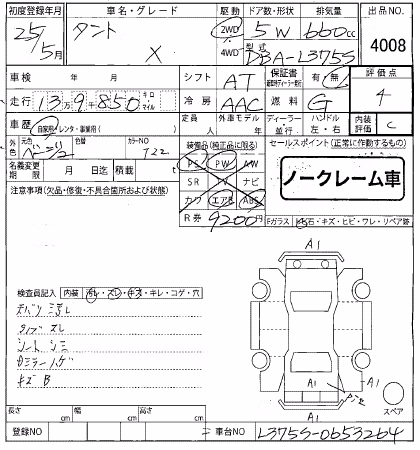 初度登録年月 車名・グレード 駆動 ドア数・形状 排気量 出品NO.
25年 5月 タント X 2WD 5W 660cc 4008
4WD 型式 DBA-L375S
車検 年 月 シフト AT 保証書 有・無 評価点
走行 13万9千850 キロ マイル 冷房 AAC 燃料 G 4
車歴 自家用・レンタ・事業用( ) 定員 外車モデル 年 ディーラー 並行 ハンドル 左・右 内装評価 C
外色 元色 ベージュ 色替 カラーNO T22 装備品(純正品に限る) セールスポイント(正常に作動するもの)
名義変更期限 月 日迄 積載 PS PW AW
注意事項(欠品・修復・不具合箇所および状態) SR TV ナビ ノークレーム車
カワ エアB ABS
R券 9200円 Fガラス 飛石・キズ・ヒビ・ワレ・リペア跡
A1
検査員記入 内装 ヨゴレ・スレ・キズ・キレ・コゲ・穴
シート シミ
キズ B
A1 A1
A1 スペア
長さ cm 幅 cm 高さ cm
登録NO 車台NO L375S-0653264